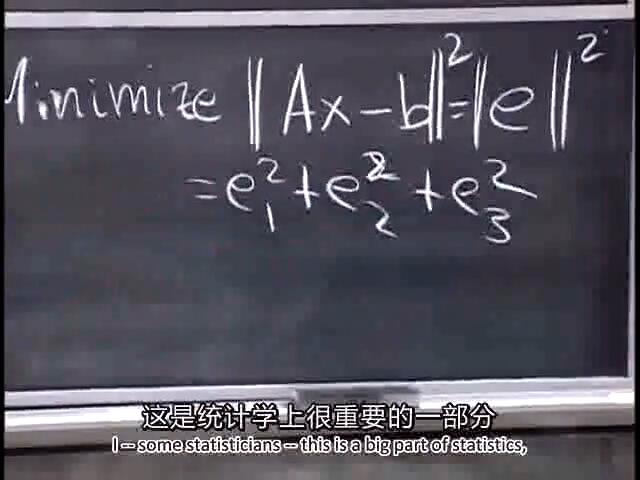 Minimize ||Ax - b||² = ||e||²
= e₁² + e₂² + e₃²
这是统计学上很重要的一部分
I -- some statisticians -- this is a big part of statistics,